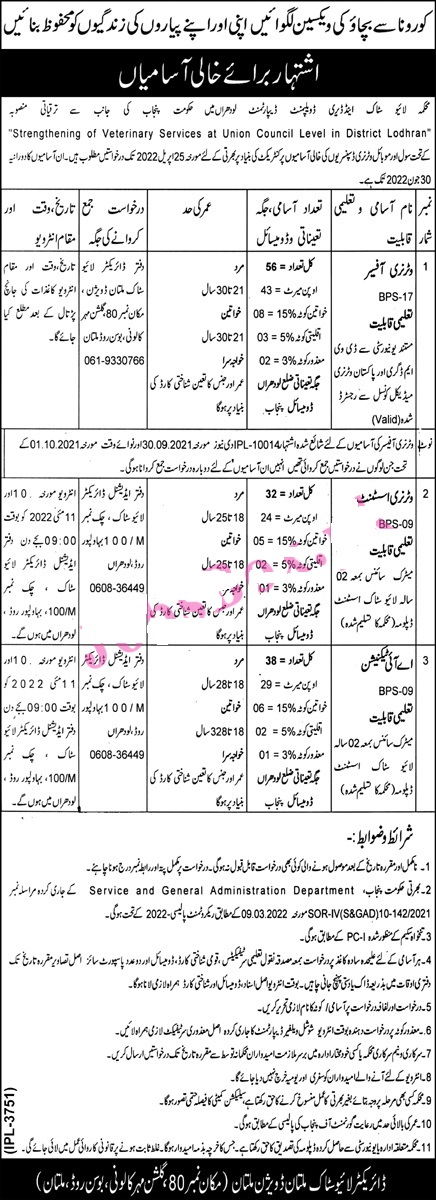 کورونا سے بچاؤ کی ویکسین لگوائیں اپنی اور اپنے پیاروں کی زندگیوں کو محفوظ بنائیں
اشتہار برائے خالی آسامیاں
محکمہ لائیوسٹاک اینڈ ڈیری ڈویلپمنٹ ڈیپارٹمنٹ لودھراں میں حکومت پنجاب کی جانب سے ترقیاتی منصوبہ
"Strengthening of Veterinary Services at Union Council Level in District Lodhran"
کے تحت سول اور موبائل وٹرنری ڈسپنسریوں کی خالی آسامیوں پر کنٹریکٹ کی بنیاد پر بھرتی کے لئے مورخہ 25 اپریل 2022 تک درخواستیں مطلوب ہیں۔ ان آسامیوں کا دورانیہ
30 جون 2022 تک ہے۔
نمبر شمار
نام آسامی و تعلیمی قابلیت
تعداد آسامی، جگہ تعیناتی و ڈومیسائل
عمر کی حد
درخواست جمع کروانے کی جگہ
تاریخ، وقت اور مقام انٹرویو
1
وٹرنری آفیسر
BPS-17
تعلیمی قابلیت
مستند یونیورسٹی سے ڈی وی
ایم ڈگری اور پاکستان وٹرنری
میڈیکل کونسل سے رجسٹرڈ
شدہ (Valid)
کل تعداد = 56
اوپن میرٹ = 43
خواتین کوٹہ 15% = 08
اقلیتی کوٹہ 5% = 03
معذور کوٹہ 3% = 02
جگہ تعیناتی ضلع لودھراں
ڈومیسائل پنجاب
مرد
21 تا 30 سال
خواتین
21 تا 30 سال
خواجہ سرا
عمر اور جنس کا تعین شناختی کارڈ کی
بنیاد پر ہوگا
دفتر ڈائریکٹر لائیو
سٹاک ملتان ڈویژن،
مکان نمبر 80، گلشن مہر
کالونی، بوسن روڈ، ملتان
061-9330766
تاریخ، وقت اور مقام
انٹرویو کاغذات کی جانچ
پڑتال کے بعد مطلع کیا
جائے گا۔
نوٹ: وٹرنری آفیسر کی آسامیوں کے لئے شائع شدہ اشتہار IPL-10014 دی نیوز مورخہ 30.09.2021 اور نوائے وقت مورخہ 01.10.2021
کے تحت جن لوگوں نے درخواستیں جمع کروائی تھیں انہیں ان آسامیوں کے لئے دوبارہ درخواست جمع کروانا ہوگی۔
2
وٹرنری اسسٹنٹ
BPS-09
تعلیمی قابلیت
میٹرک سائنس بمعہ 02
سالہ لائیوسٹاک اسسٹنٹ
ڈپلومہ (محکمہ کا تسلیم شدہ)
کل تعداد = 32
اوپن میرٹ = 24
خواتین کوٹہ 15% = 05
اقلیتی کوٹہ 5% = 02
معذور کوٹہ 3% = 01
جگہ تعیناتی ضلع لودھراں
ڈومیسائل پنجاب
مرد
18 تا 25 سال
خواتین
18 تا 25 سال
خواجہ سرا
عمر اور جنس کا تعین شناختی کارڈ کی
بنیاد پر ہوگا
دفتر ایڈیشنل ڈائریکٹر
لائیوسٹاک، چک نمبر
100/M بہاولپور
روڈ، لودھراں
0608-36449
انٹرویو مورخہ 10 اور
11 مئی 2022 کو بوقت
09:00 بجے دن دفتر
ایڈیشنل ڈائریکٹر لائیو
سٹاک، چک نمبر
100/M، بہاولپور روڈ،
لودھراں میں ہوں گے۔
3
اے آئی ٹیکنیشن
BPS-09
تعلیمی قابلیت
میٹرک سائنس بمعہ 02 سالہ
لائیو سٹاک اسسٹنٹ
ڈپلومہ (محکمہ کا تسلیم شدہ)
کل تعداد = 38
اوپن میرٹ = 29
خواتین کوٹہ 15% = 06
اقلیتی کوٹہ 5% = 02
معذور کوٹہ 3% = 01
جگہ تعیناتی ضلع لودھراں
ڈومیسائل پنجاب
مرد
18 تا 28 سال
خواتین
18 تا 328 سال
خواجہ سرا
عمر اور جنس کا تعین شناختی کارڈ کی
بنیاد پر ہوگا
دفتر ایڈیشنل ڈائریکٹر
لائیوسٹاک، چک نمبر
100/M بہاولپور
روڈ، لودھراں
0608-36449
انٹرویو مورخہ 10 اور
11 مئی 2022 کو
بوقت 09:00 بجے دن
دفتر ایڈیشنل ڈائریکٹر لائیو
سٹاک، چک نمبر
100/M، بہاولپور روڈ،
لودھراں میں ہوں گے۔
شرائط و ضوابط:-
1۔ نامکمل اور مقررہ تاریخ کے بعد موصول ہونے والی کوئی بھی درخواست قابل قبول نہ ہوگی۔ درخواست پر مکمل پتہ اور رابطہ نمبر درج ہونا چاہئے۔
2۔ بھرتی حکومت پنجاب، Service and General Administration Department کے جاری کردہ مراسلہ نمبر
SOR-IV(S&GAD)10-142/2021 مورخہ 09.03.2022 کے مطابق ریکروٹمنٹ پالیسی-2022 کے تحت ہوگی۔
3۔ تنخواہ سکیم کے منظور شدہ PC-I کے مطابق ہوگی۔
4۔ ہر آسامی کے لئے علیحدہ سادہ کاغذ پر درخواست بمعہ مصدقہ نقول تعلیمی سرٹیفکیٹس، قومی شناختی کارڈ، ڈومیسائل اور دو عدد پاسپورٹ سائز اصل تصاویر مقررہ تاریخ تک
دفتری اوقات میں بذریعہ ڈاک یا دستی پہنچ جانی چاہیں۔ بوقت انٹرویو اصل اسناد، ڈومیسائل اور شناختی کارڈ ہمراہ لازمی لانا ہوگا۔
5۔ درخواست اور لفافہ درخواست پر آسامی / کوٹہ کا نام لازمی تحریر کریں۔
6۔ معذور کوٹہ پر درخواست دہندہ بوقت انٹرویو شوشل ویلفیئر ڈیپارٹمنٹ کا جاری کردہ اصل معذوری سرٹیفکیٹ لازمی ہمراہ لائے۔
7۔ سرکاری و نیم سرکاری محکمہ یا کسی خودمختار ادارہ میں برسر ملازمت امیدواران محکمانہ توسط سے مقررہ تاریخ تک درخواستیں ارسال کریں۔
8۔ انٹرویو کے لئے آنے والے امیدواران کو سفری اور یومیہ خرچ نہیں دیا جائے گا۔
9۔ محکمہ کسی بھی مرحلہ پر وجہ بتائے بغیر بھرتی کا عمل منسوخ کرنے کا حق رکھتا ہے سلیکشن کمیٹی کا فیصلہ حتمی تصور ہوگا۔
10۔ عمر کی بالائی حد میں رعایت گورنمنٹ آف پنجاب کی پالیسی کے مطابق ہوگی۔
11۔ محکمہ متعلقہ ادارہ یا یونیورسٹی سے حاصل کردہ ڈپلومہ کی تصدیق کا حق رکھتا ہے۔ جس کا خرچہ بذمہ امیدوار ہوگا۔ غلط ثابت ہونے پر قانونی کارروائی عمل میں لائی جائے گی۔
ڈائریکٹر لائیوسٹاک ملتان ڈویژن ملتان (مکان نمبر 80، گلشن مہر کالونی، بوسن روڈ، ملتان)
(IPL-3751)